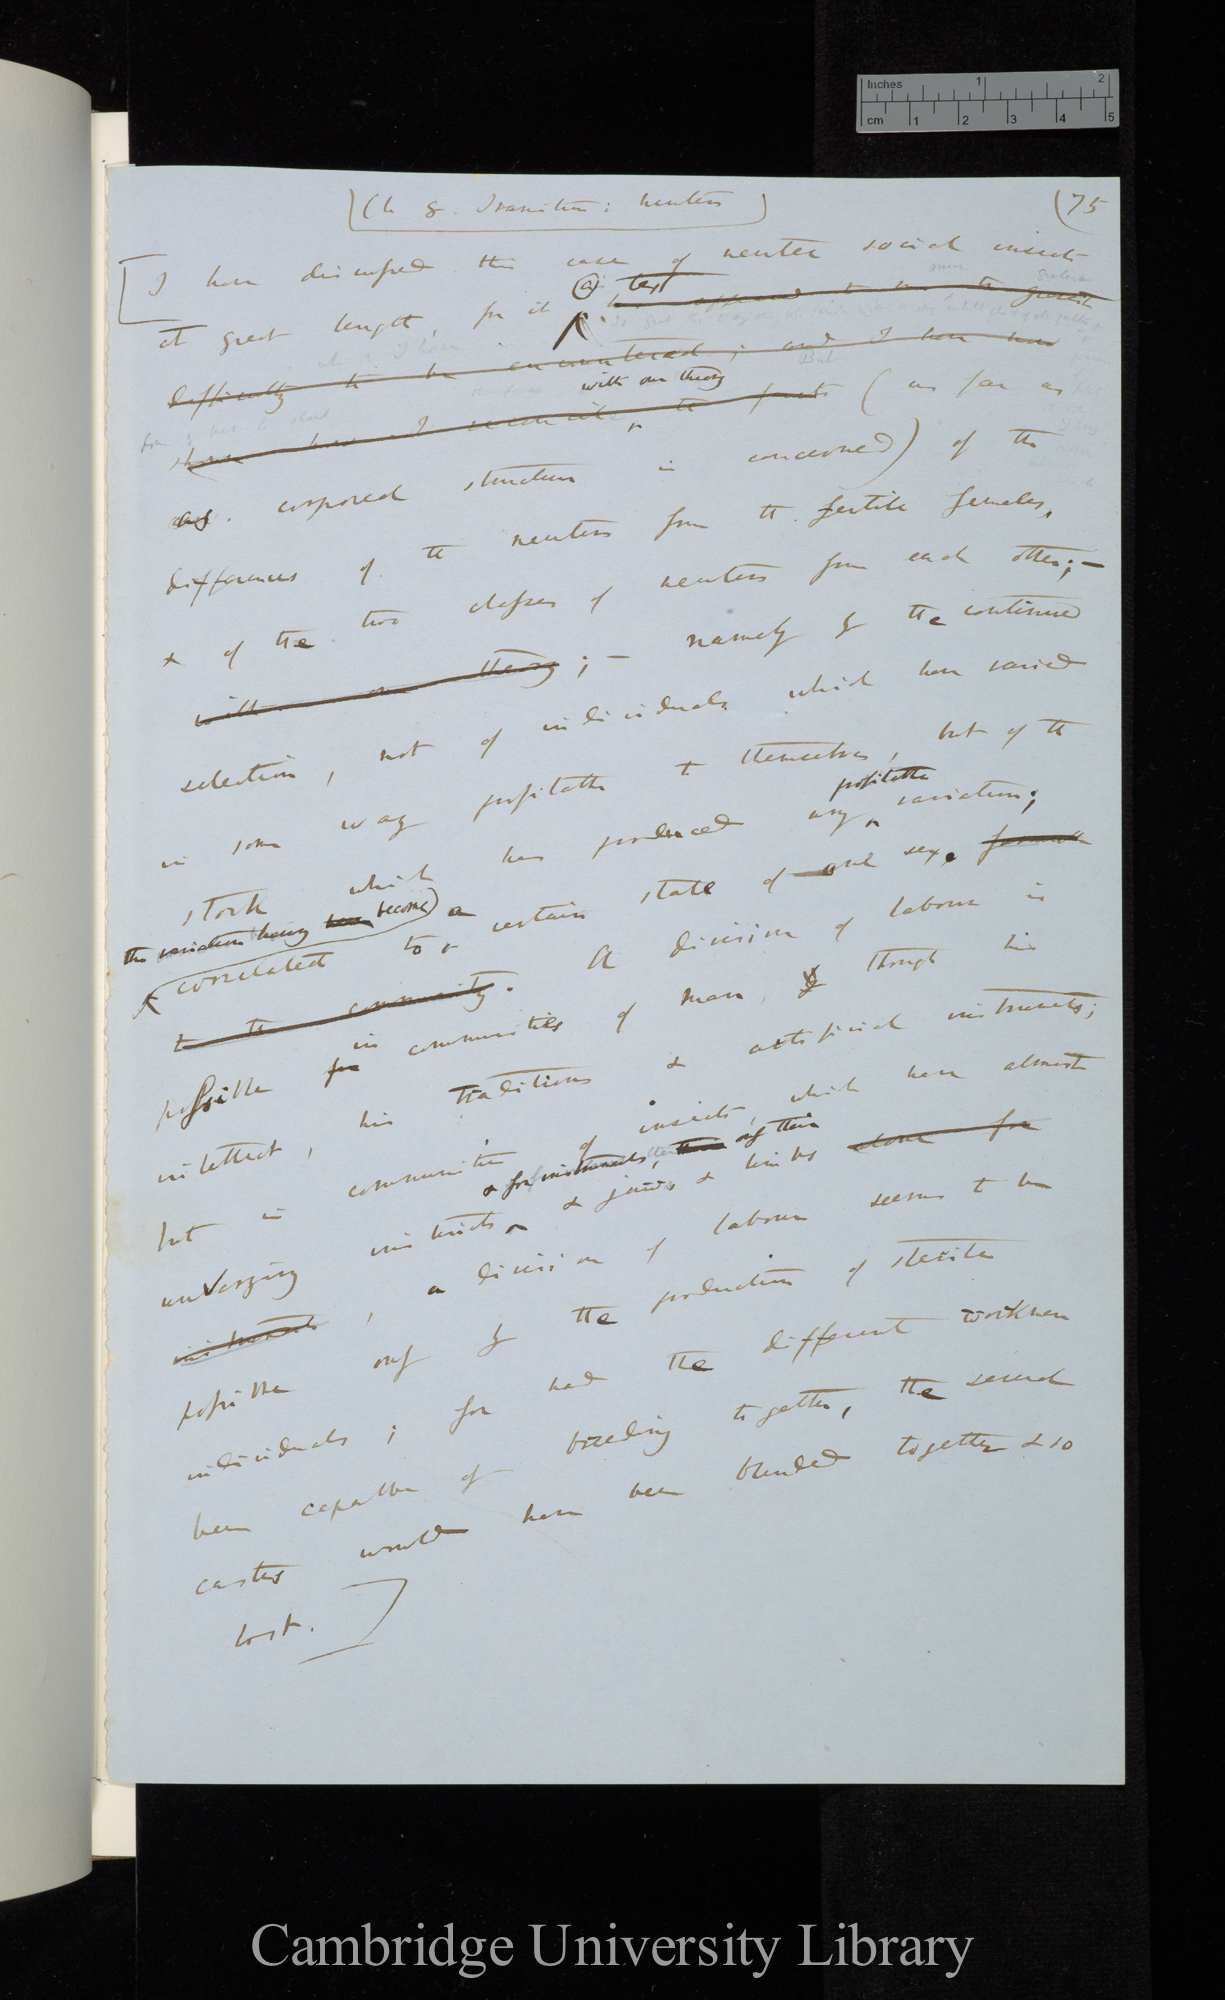 Inches 1 2
cm 1 2 3 4 5
(Ch 8. Transition: Neuters)
(75
I have discussed this case of neuter social insects
(a) text
at great length, for it has appeared to me the greatest
difficulty to be encountered; and I have
with our theory
how I reconcile the facts (as far as
corporeal structure is concerned) of the
differences of the neuters from the fertile females,
& of the two classes of neuters from each other; —
with our theory; — namely by the continued
selection, not of individuals which have varied
in some way profitable to themselves, but of the
profitable
stock which has produced any variation;
the variation having been become)
correlated to a certain state of one sex.
to the community. A division of labour is
in
possible for communities of man, though his
intellect, his traditions & artificial instruments;
but in communities of insects, which have almost
& for instruments, their
unvarying instincts & jaws & limbs alone for
instruments, a division of labour seems to be
possible only by the production of sterile
individuals; for had the different workmen
been capable of breeding together, the several
castes would have been blended together & so
lost.
Cambridge University Library